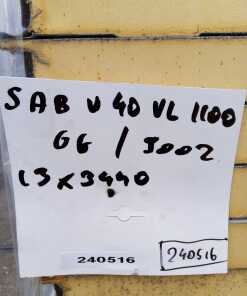 SAB U 40 VL 1100
GG / 5002
13 x 3440
240516
240516